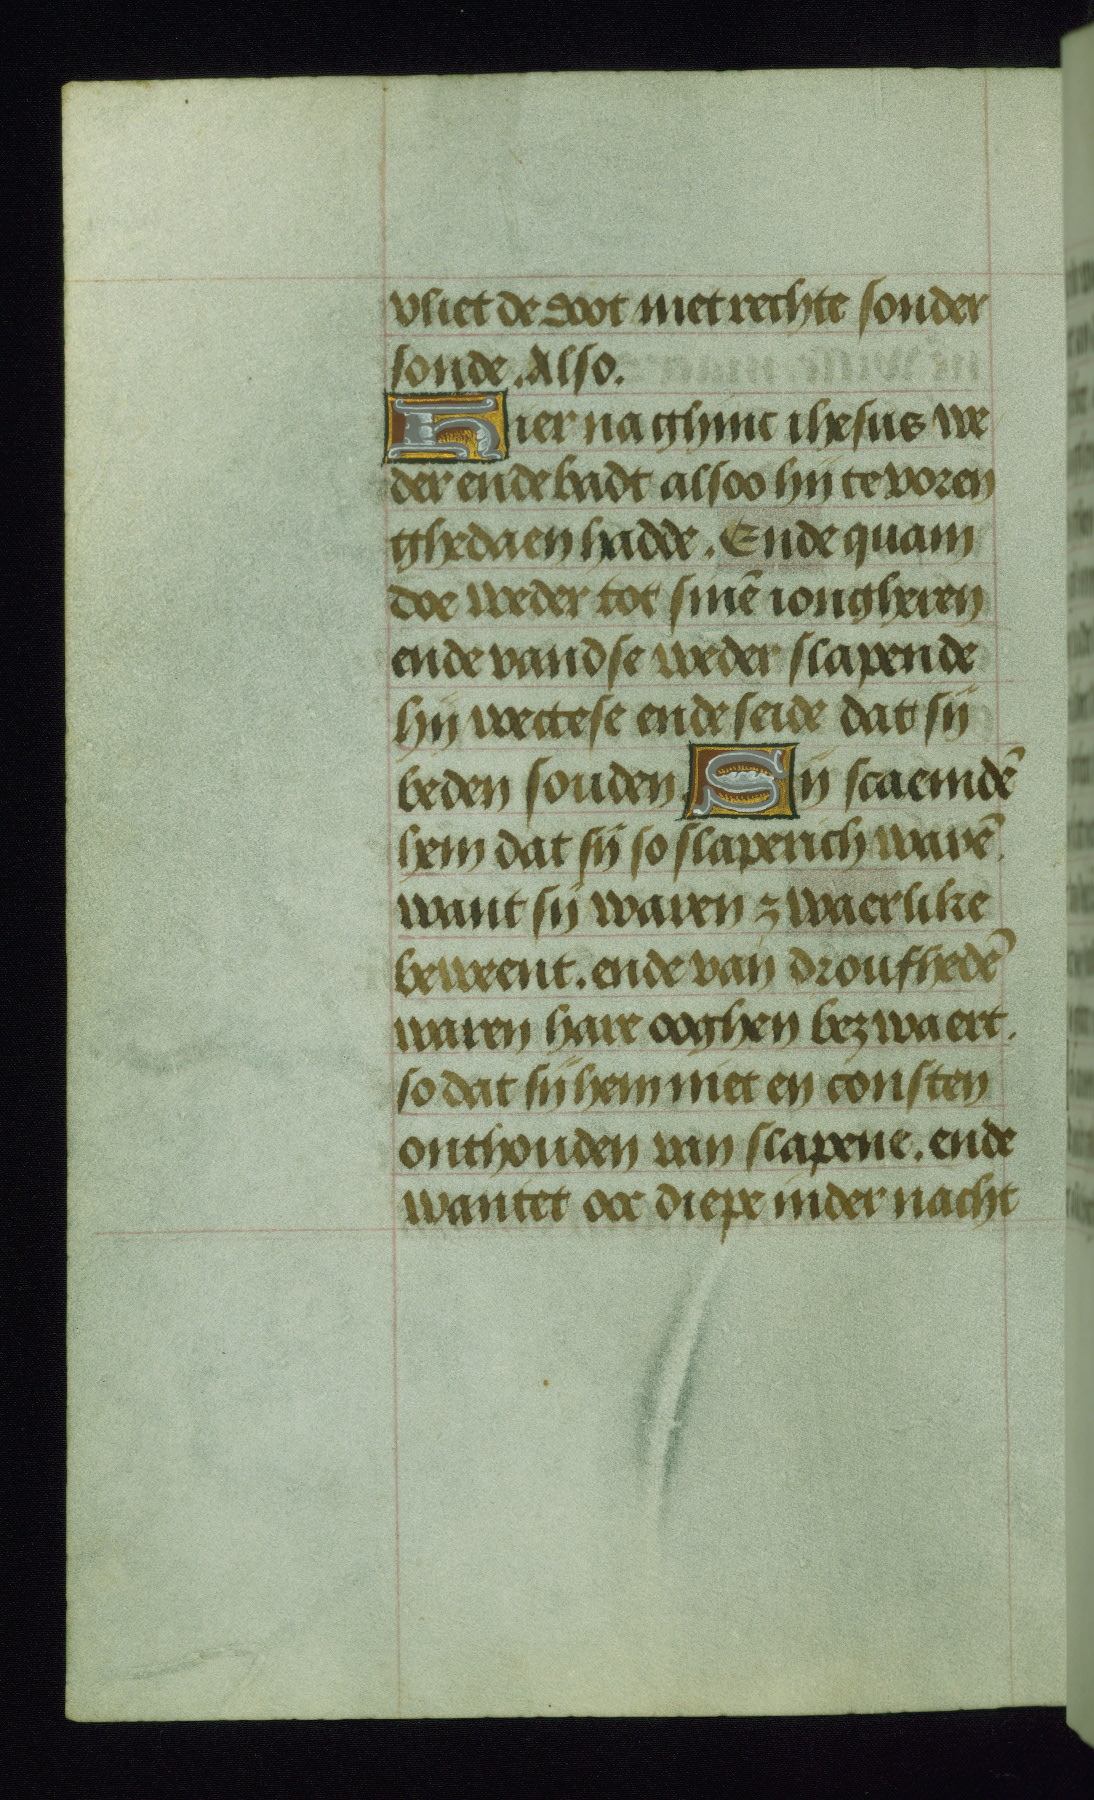 vliet de doot niet rechte sonder
sonde. Also.
Hier na ghinc ihesus we
der ende badt alsoo hij te voren
ghedaen hadde. Ende quam
doe weder tot sinē iongheren
ende vandse weder slapende
hij wectese ende seide dat sij
beden souden. Sij scaemdē
hem dat sij so slaperich warē.
want sij waren zwaerlike
beweent. ende van droufhedē
waren hare ooghen bezwaert.
so dat sij hem niet en consten
onthouden van slapene. ende
wantet ooc diepe inder nacht